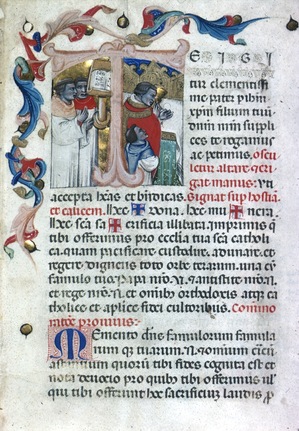 E I G I
tur clementissi
me pater p ihm
xpm filium tuū
dnm nrm supplī
ces te rogamus
ac petimus. Oscu
letur altare. eri
gat manus: vti
accepta heas et bndicas. Signat sup hostiā
et calicem. Hec ✠ dona. hec mu ✠ nera.
hec sca sa ✠ crificia illibata. Inprimis q
tibi offerimus pro ecclia tua sca catholi
ca. quam pacificare custodire. adunare. et
regere digneris toto orbe terarum. una cū
famulo tuo Papa nro .N. et antistite nro .N.
et rege nro .N. et omibz orthodoxis atqz ca
tholice et aplice fidei cultoribus. Commo
ratio pro viuis:
Memento dne famulorum famula
rum qz tuarum .N. et omnium circū
astantium quorū tibi fides cognita est et
nota deuocio pro quibz tibi offerimus ul
qui tibi offerunt hoc sacrificium laudis p